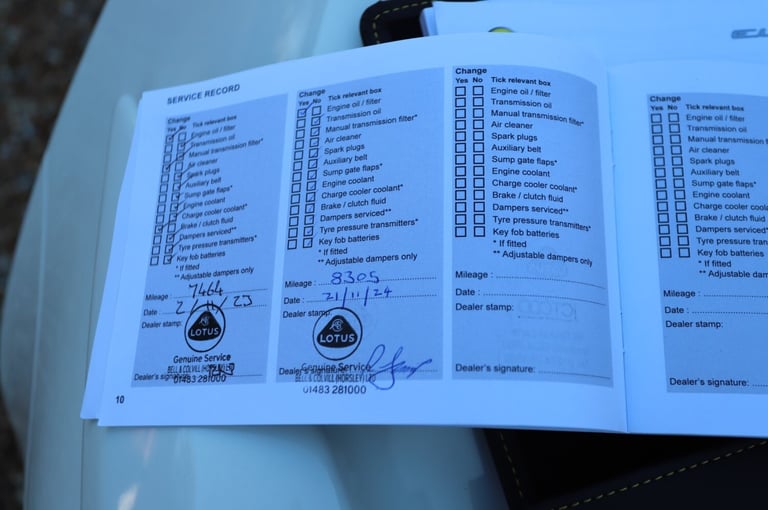 SERVICE RECORD
Change
Yes No Tick relevant box
Engine oil / filter
Transmission oil
Manual transmission filter*
Air cleaner
Spark plugs
Auxiliary belt
Sump gater flaps*
Engine coolant
Charge cooler coolant*
Brake / clutch fluid
Dampers serviced**
Tyre pressure transmitters*
Key fob batteries
* If fitted
** Adjustable dampers only
Mileage : 7464
Date : 2/11/23
Dealer stamp:
LOTUS
Genuine Service
BELL & COLVILL (HORSLEY) LTD
Dealer's signature
01483 281000
10
Change
Yes No Tick relevant box
Engine oil / filter
Transmission oil
Manual transmission filter*
Air cleaner
Spark plugs
Auxiliary belt
Sump gate flaps*
Engine coolant
Charge cooler coolant*
Brake / clutch fluid
Dampers serviced**
Tyre pressure transmitters*
Key fob batteries
* If fitted
** Adjustable dampers only
Mileage : 8305
Date : 21/11/24
Dealer stamp:
LOTUS
Genuine Service
Dealer's signature
BELL & COLVILL (HORSLEY) LTD
01483 281000
Change
Yes No Tick relevant box
Engine oil / filter
Transmission oil
Manual transmission filter*
Air cleaner
Spark plugs
Auxiliary belt
Sump gate flaps*
Engine coolant
Charge cooler coolant*
Brake / clutch fluid
Dampers serviced**
Tyre pressure transmitters*
Key fob batteries
* If fitted
** Adjustable dampers only
Mileage :
Date :
Dealer stamp:
Dealer's signature:
Change
Yes No Tick relevant box
Engine oil / filter
Transmission oil
Manual transmission f
Air cleaner
Spark plugs
Auxiliary belt
Sump gate flaps*
Engine coolant
Charge cooler coola
Brake / clutch fluid
Dampers serviced*
Tyre pressure tran
Key fob batteries
* If fitted
** Adjustable dam
Mileage :
Date :
Dealer stamp:
Dealer's signature: